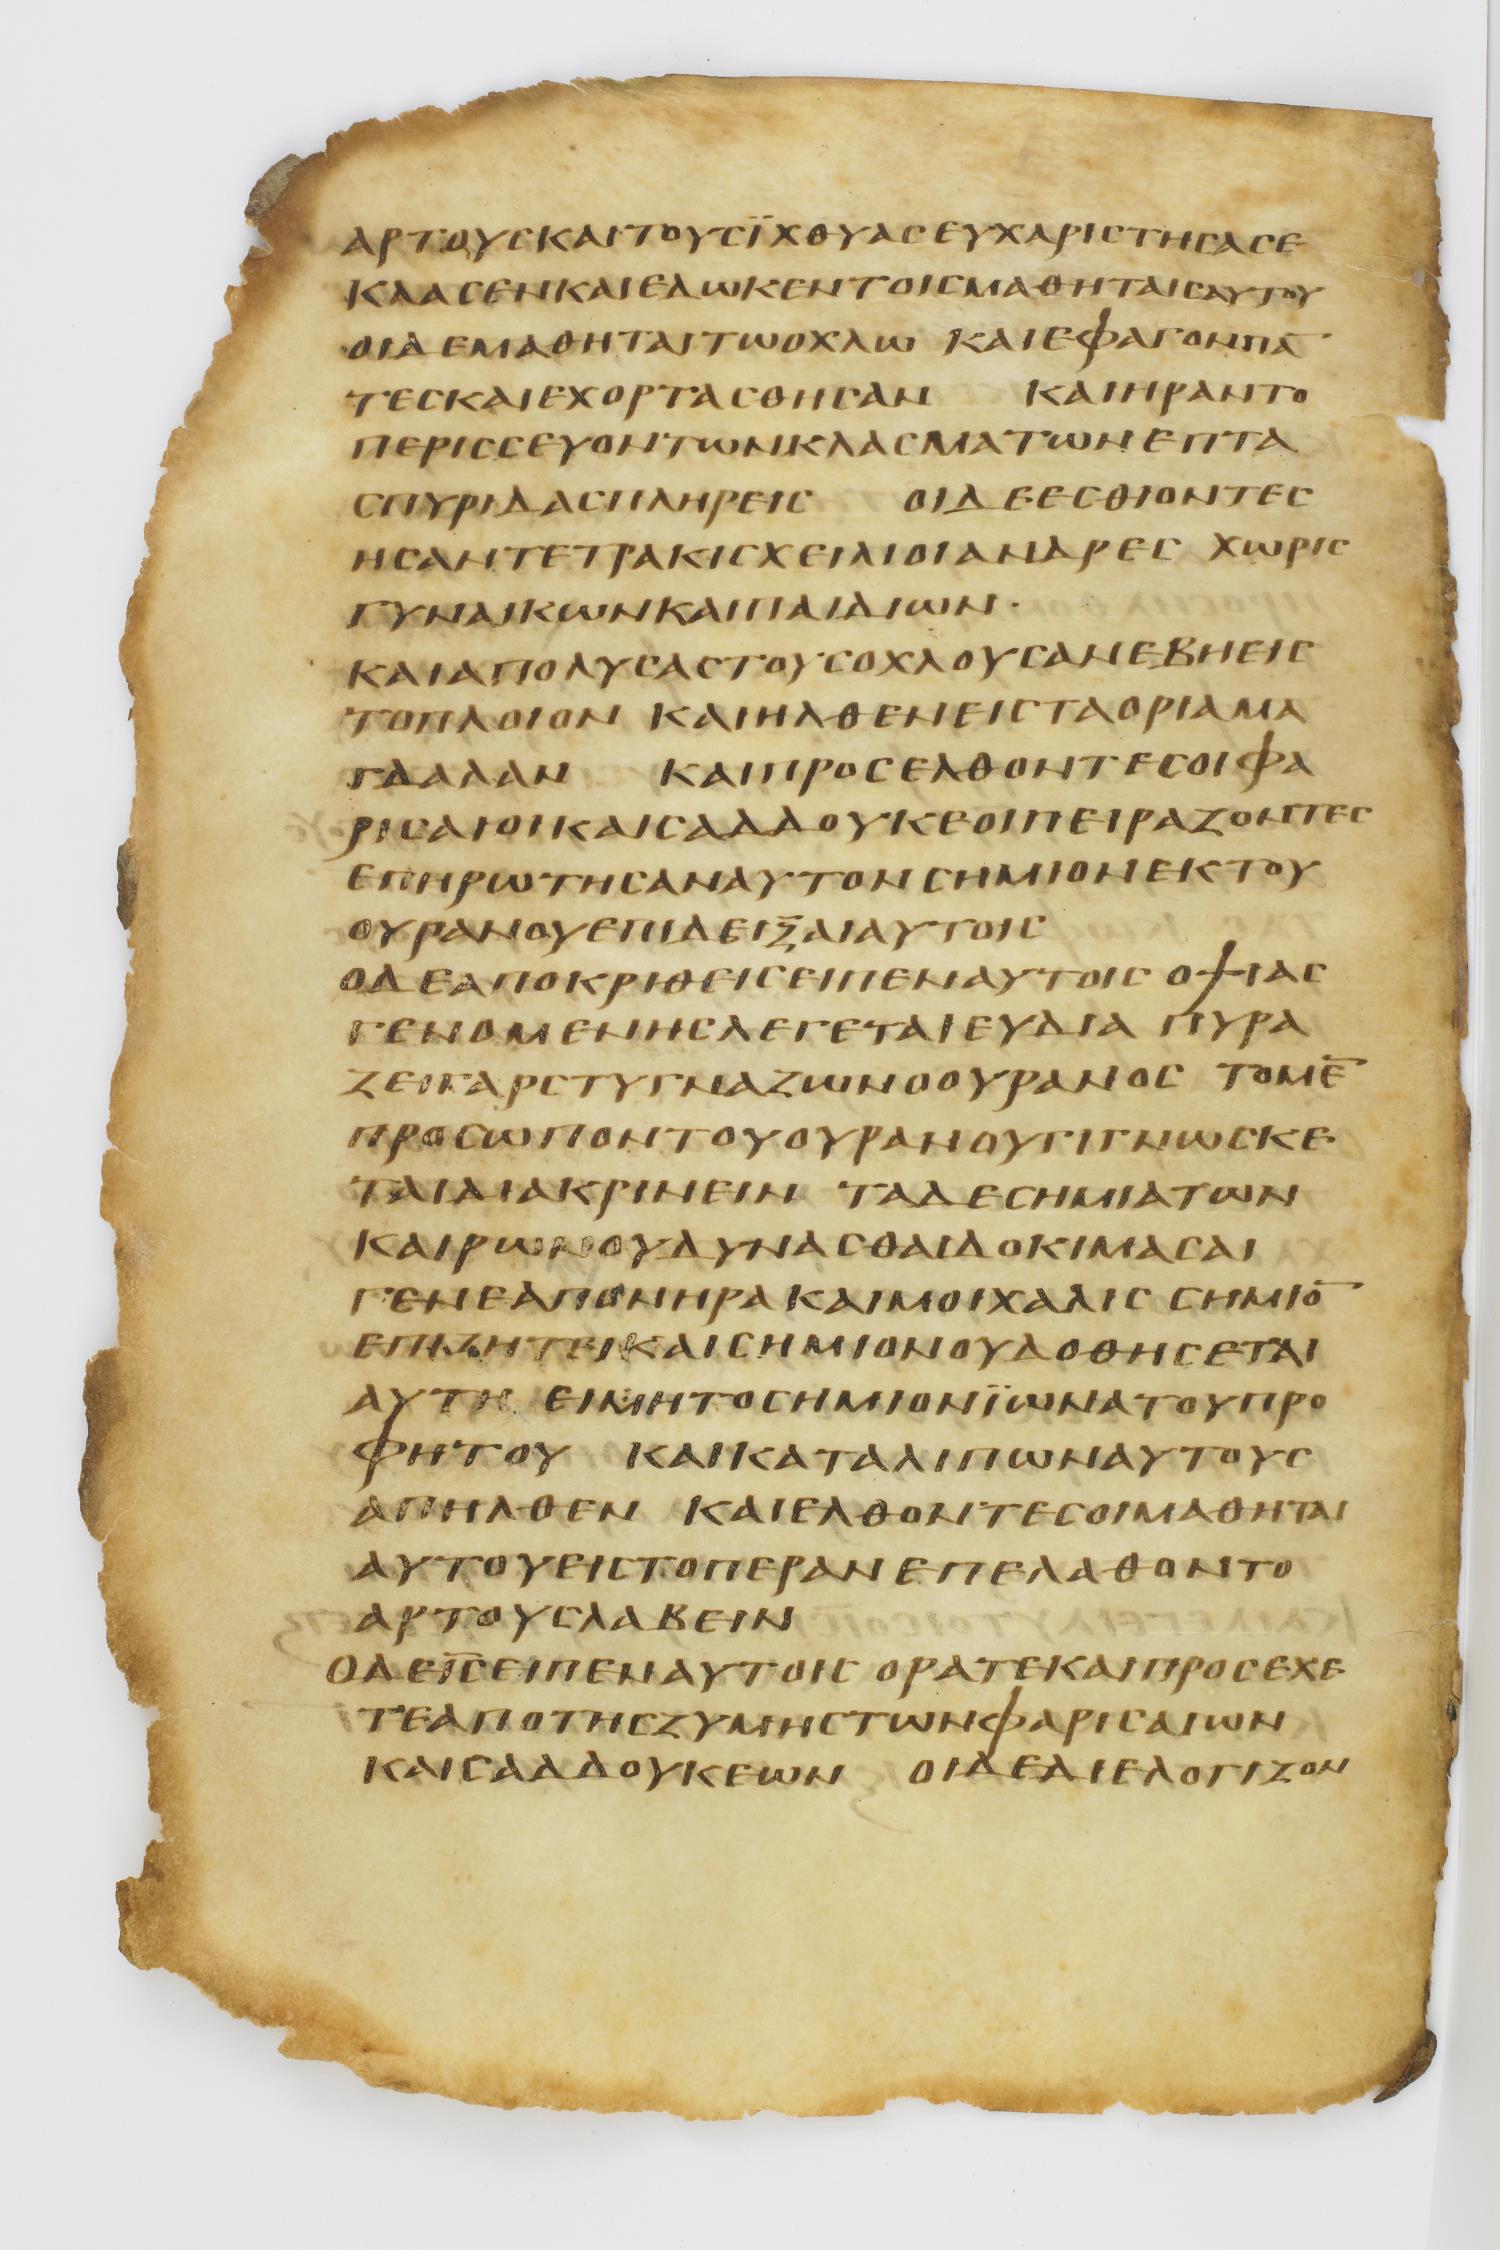 ΑΡΤΟΥΣΚΑΙΤΟΥΣΪΧΘΥΑΣΕΥΧΑΡΙΣΤΗΣΑΣΕ
ΚΛΑΣΕΝΚΑΙΕΔΩΚΕΝΤΟΙΣΜΑΘΗΤΑΙΣΑΥΤΟΥ
ΟΙΔΕΜΑΘΗΤΑΙΤΩΟΧΛΩ ΚΑΙΕΦΑΓΟΝΠΑ̅
ΤΕΣΚΑΙΕΧΟΡΤΑΣΘΗΣΑΝ ΚΑΙΗΡΑΝΤΟ
ΠΕΡΙΣΣΕΥΟΝΤΩΝΚΛΑΣΜΑΤΩΝΕΠΤΑ
ΣΠΥΡΙΔΑΣΠΛΗΡΕΙΣ ΟΙΔΕΕΣΘΙΟΝΤΕΣ
ΗΣΑΝΤΕΤΡΑΚΙΣΧΕΙΛΙΟΙΑΝΔΡΕΣ ΧΩΡΙΣ
ΓΥΝΑΙΚΩΝΚΑΙΠΑΙΔΙΩΝ·
ΚΑΙΑΠΟΛΥΣΑΣΤΟΥΣΟΧΛΟΥΣΑΝΕΒΗΕΙΣ
ΤΟΠΛΟΙΟΝ ΚΑΙΗΛΘΕΝΕΙΣΤΑΟΡΙΑΜΑ
ΓΔΑΛΑΝ ΚΑΙΠΡΟΣΕΛΘΟΝΤΕΣΟΙΦΑ
ΡΙΣΑΙΟΙΚΑΙΣΑΔΔΟΥΚΕΟΙΠΕΙΡΑΖΟΝΤΕΣ
ΕΠΗΡΩΤΗΣΑΝΑΥΤΟΝΣΗΜΙΟΝΕΚΤΟΥ
ΟΥΡΑΝΟΥΕΠΙΔΕΙΞΑΙΑΥΤΟΙΣ
ΟΔΕΑΠΟΚΡΙΘΕΙΣΕΙΠΕΝΑΥΤΟΙΣ ΟΨΙΑΣ
ΓΕΝΟΜΕΝΗΣΛΕΓΕΤΑΙΕΥΔΙΑ ΠΥΡΑ
ΖΕΙΓΑΡΣΤΥΓΝΑΖΩΝΟΟΥΡΑΝΟΣ ΤΟΜΕ̅
ΠΡΟΣΩΠΟΝΤΟΥΟΥΡΑΝΟΥΓΙΓΝΩΣΚΕ
ΤΑΙΔΙΑΚΡΙΝΕΙΝ ΤΑΔΕΣΗΜΙΑΤΩΝ
ΚΑΙΡΩΝΟΥΔΥΝΑΣΘΑΙΔΟΚΙΜΑΣΑΙ
ΓΕΝΕΑΠΟΝΗΡΑΚΑΙΜΟΙΧΑΛΙΣ ΣΗΜΙΟ̅
ΕΠΙΖΗΤΕΙΚΑΙΣΗΜΙΟΝΟΥΔΟΘΗΣΕΤΑΙ
ΑΥΤΗ ΕΙΜΗΤΟΣΗΜΙΟΝΪΩΝΑΤΟΥΠΡΟ
ΦΗΤΟΥ ΚΑΙΚΑΤΑΛΙΠΩΝΑΥΤΟΥΣ
ΑΠΗΛΘΕΝ ΚΑΙΕΛΘΟΝΤΕΣΟΙΜΑΘΗΤΑΙ
ΑΥΤΟΥΕΙΣΤΟΠΕΡΑΝΕΠΕΛΑΘΟΝΤΟ
ΑΡΤΟΥΣΛΑΒΕΙΝ
ΟΔΕΙ̅Σ̅ΕΙΠΕΝΑΥΤΟΙΣ ΟΡΑΤΕΚΑΙΠΡΟΣΕΧΕ
ΤΕΑΠΟΤΗΣΖΥΜΗΣΤΩΝΦΑΡΙΣΑΙΩΝ
ΚΑΙΣΑΔΔΟΥΚΕΩΝ ΟΙΔΕΔΙΕΛΟΓΙΖΟΝ